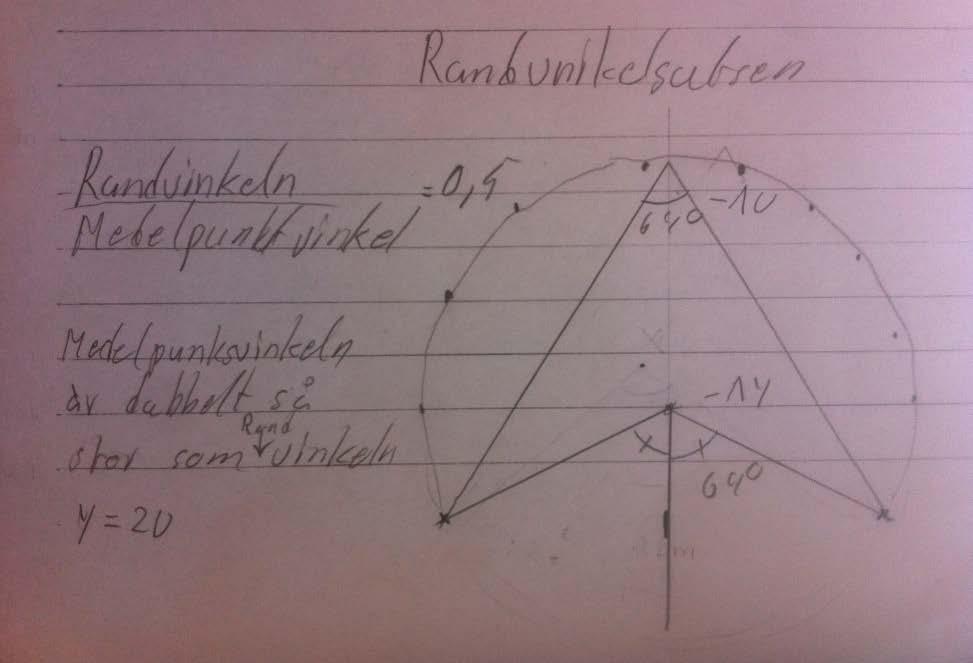 Randvinkelsatsen
Randvinkeln = 0,5
Medelpunktvinkel
64° -1U
Medelpunksvinkeln
är dubbelt så
stor som Rand vinkeln
-1Y
64°
Y = 2U